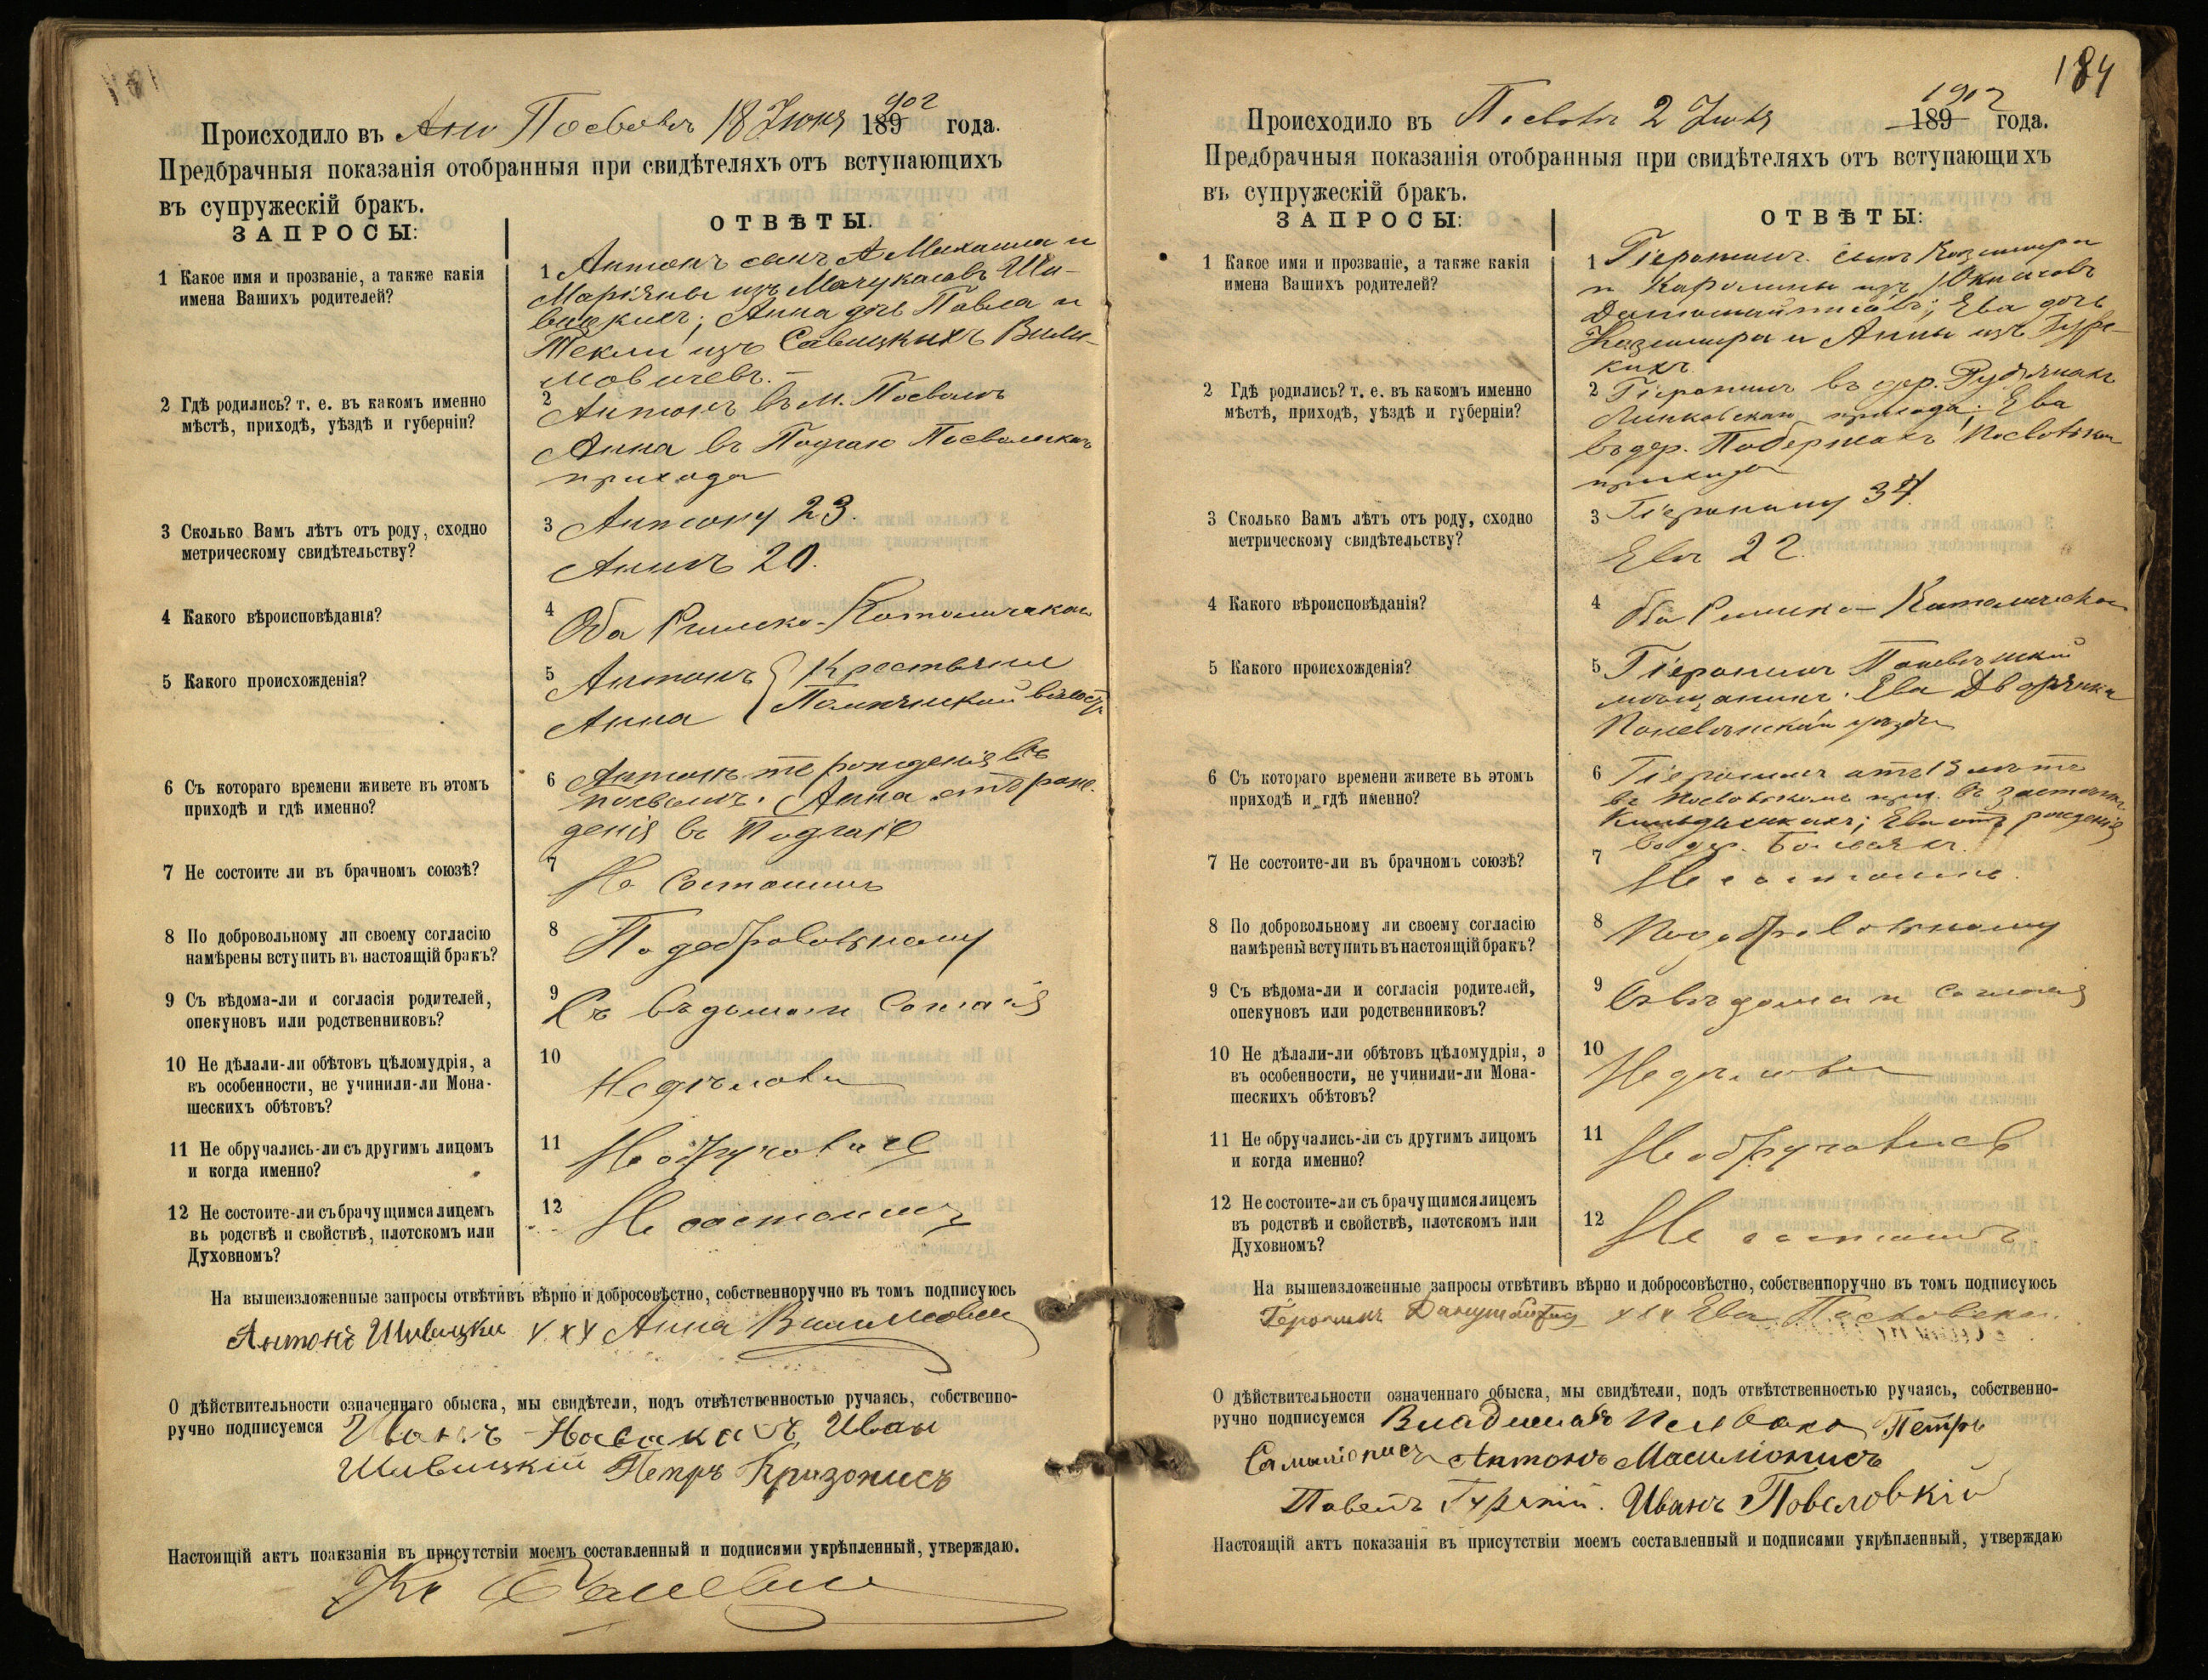 Происходило въ Посволѣ 18 Іюня 189 902 года.
Предбрачныя показанія отобранныя при свидѣтеляхъ отъ вступающихъ
въ супружескій бракъ.
ЗАПРОСЫ:
ОТВѢТЫ.
1 Какое имя и прозваніе, а также какія
имена Вашихъ родителей?
1 Антонъ сынъ Михаила и
Маріянны изъ Мачукасовъ Ши-
вицкихъ; Анна дочь Павла и
Текли изъ Савицкихъ Вили-
мовичевъ.
2 Гдѣ родились? т. е. въ какомъ именно
мѣстѣ, приходѣ, уѣздѣ и губерніи?
2 Антонъ въ м. Посволѣ
Анна въ Посвольскаго
прихода
3 Сколько Вамъ лѣтъ отъ роду, сходно
метрическому свидѣтельству?
3 Антону 23.
Аннѣ 20.
4 Какого вѣроисповѣданія?
4 Оба Римско-Католическаго
5 Какого происхожденія?
5 Антонъ } Крестьяне
Анна волости
6 Съ котораго времени живете въ этомъ
приходѣ и гдѣ именно?
6 Антонъ рожденія въ
Посволѣ. Анна отъ рож-
денія въ
7 Не состоите ли въ брачномъ союзѣ?
7 Не состоимъ
8 По добровольному ли своему согласію
намѣрены вступить въ настоящій бракъ?
8 По добровольному
9 Съ вѣдома-ли и согласія родителей,
опекуновъ или родственниковъ?
9 Съ вѣдома и согласія
10 Не дѣлали-ли обѣтовъ цѣломудрія, а
въ особенности, не учинили-ли Мона-
шескихъ обѣтовъ?
10 Не дѣлали
11 Не обручались-ли съ другимъ лицомъ
и когда именно?
11 Не обручались
12 Не состоите-ли съ брачущимся лицемъ
въ родствѣ и свойствѣ, плотскомъ или
Духовномъ?
12 Не состоимъ
На вышеизложенные запросы отвѣтивъ вѣрно и добросовѣстно, собственноручно въ томъ подписуюсь
Антонъ Шивицки ххх Анна
О дѣйствительности означеннаго обыска, мы свидѣтели, подъ отвѣтственностью ручаясь, собственно-
ручно подписуемся Иванъ Иван
Шивицкій Петръ Кризонисъ
Настоящій актъ поакзанія въ присутствіи моемъ составленный и подписями укрѣпленный, утверждаю.
184
Происходило въ Посволѣ 2 189 1902 года.
Предбрачныя показанія отобранныя при свидѣтеляхъ отъ вступающихъ
въ супружескій бракъ.
ЗАПРОСЫ:
ОТВѢТЫ:
1 Какое имя и прозваніе, а также какія
имена Вашихъ родителей?
1 Гіеронимъ сынъ Казимира
и Каролины изъ
Ева дочь
Казимира и Анны изъ Гурс-
кихъ
2 Гдѣ родились? т. е. въ какомъ именно
мѣстѣ, приходѣ, уѣздѣ и губерніи?
2 Гіеронимъ въ дер.
прихода; Ева
въ дер. Посвольскаго
прихода
3 Сколько Вамъ лѣтъ отъ роду, сходно
метрическому свидѣтельству?
3 Гіерониму 34.
Евѣ 22.
4 Какого вѣроисповѣданія?
4 Оба Римско-Католическаго
5 Какого происхожденія?
5 Гіеронимъ Поневѣжскій
мѣщанинъ. Ева Дворянка
Поневѣжскаго уѣзда
6 Съ котораго времени живете въ этомъ
приходѣ и гдѣ именно?
6 Гіеронимъ
въ Посвольскомъ прих. въ
Ева отъ рожденія
въ дер.
7 Не состоите-ли въ брачномъ союзѣ?
7 Не состоимъ.
8 По добровольному ли своему согласію
намѣрены вступить въ настоящій бракъ?
8 По добровольному
9 Съ вѣдома-ли и согласія родителей,
опекуновъ или родственниковъ?
9 Съ вѣдома и согласія
10 Не дѣлали-ли обѣтовъ цѣломудрія, э
въ особенности, не учинили-ли Мона-
шескихъ обѣтовъ?
10 Не дѣлали
11 Не обручались-ли съ другимъ лицомъ
и когда именно?
11 Не обручались
12 Не состоите-ли съ брачущимся лицемъ
въ родствѣ и свойствѣ, плотскомъ или
Духовномъ?
12 Не состоимъ
На вышеизложенные запросы отвѣтивъ вѣрно и добросовѣстно, собственноручно въ томъ подписуюсь
ххх Ева
О дѣйствительности означеннаго обыска, мы свидѣтели, подъ отвѣтственностью ручаясь, собственно-
ручно подписуемся Петръ
Антонъ Масилюнисъ
Иванъ
Настоящій актъ показанія въ присутствіи моемъ составленный и подписями укрѣпленный, утверждаю